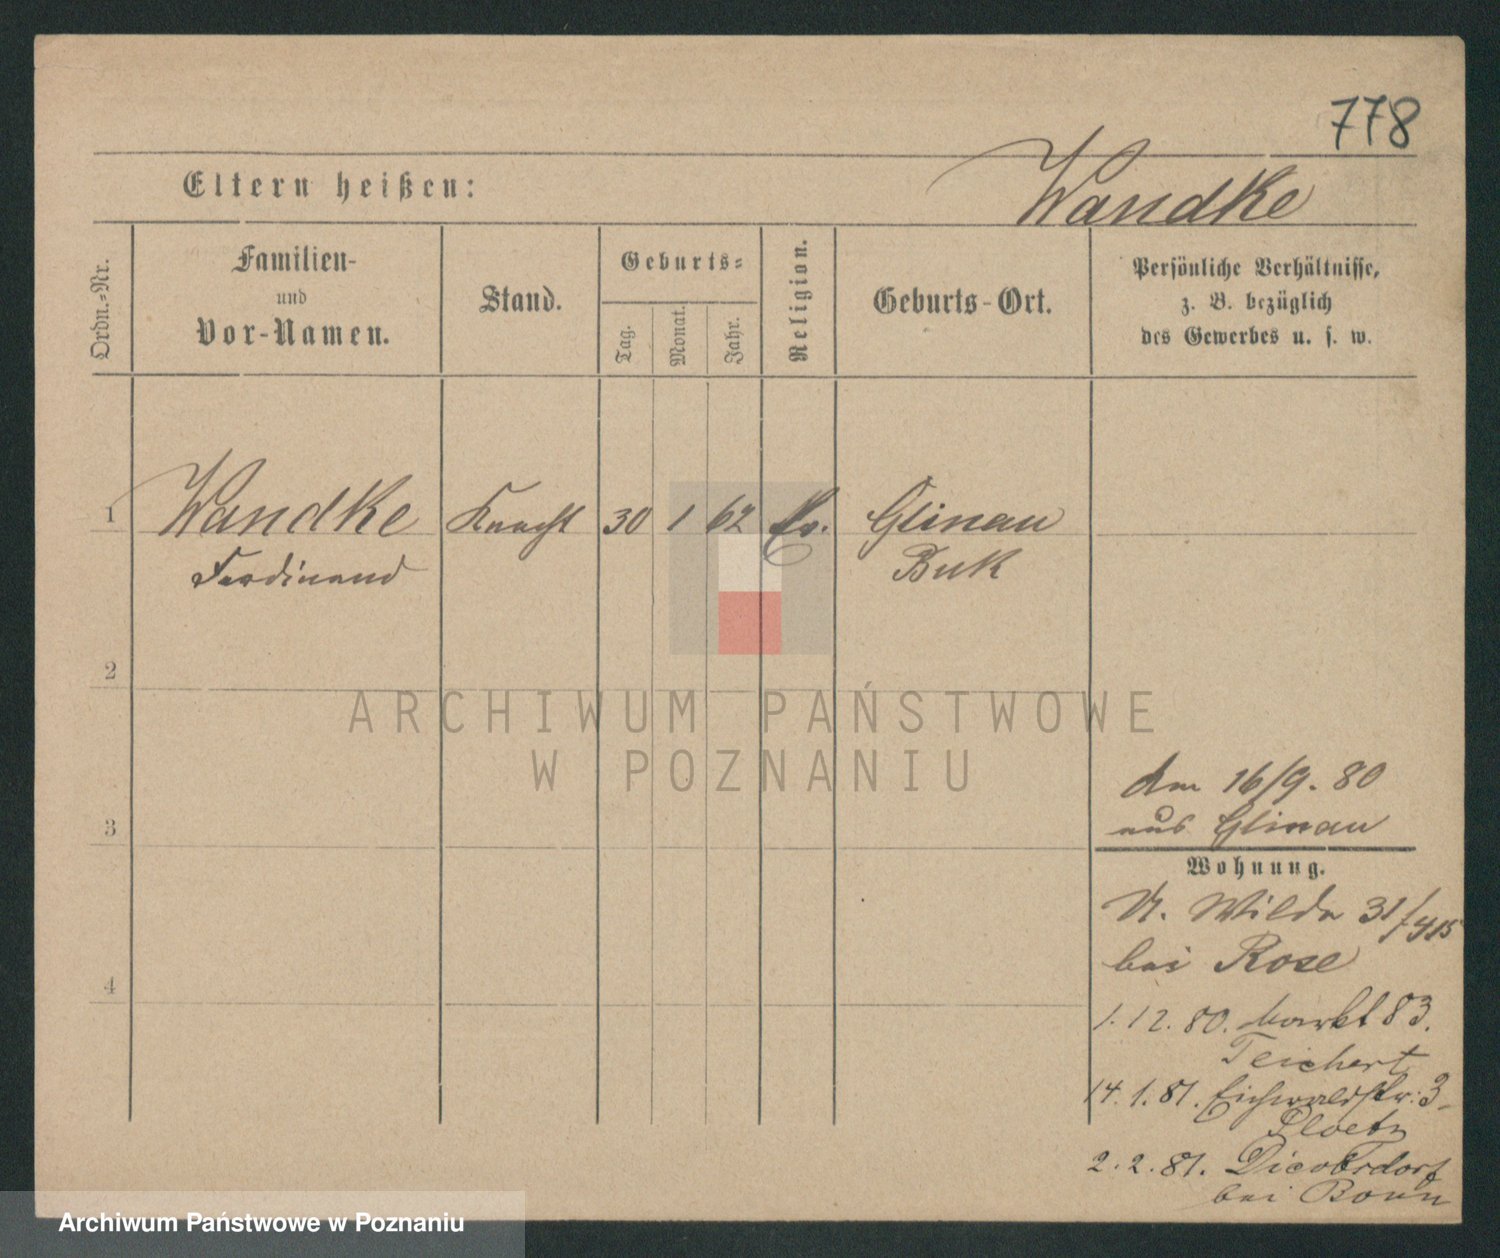 778
Eltern heißen:
Wandke
Ordn.=Nr.
Familien-
und
Vor-Namen.
Stand.
Geburts=
Tag.
Monat.
Jahr.
Religion.
Geburts-Ort.
Persönliche Verhältnisse,
z. B. bezüglich
des Gewerbes u. s. w.
1 Wandke Knecht 30 1 62 Ev. Glinau
Ferdinand Buk
2
ARCHIWUM PAŃSTWOWE
W POZNANIU
den 16/9. 80
3
aus Glinau
Wohnung.
U. Wilda 31/415
bei Rose
4
1. 12. 80. Markt 83.
Teichert
14. 1. 81. Eichwaldstr: 3
Ploetz
2. 2. 81.
bei Bonn
Archiwum Państwowe w Poznaniu